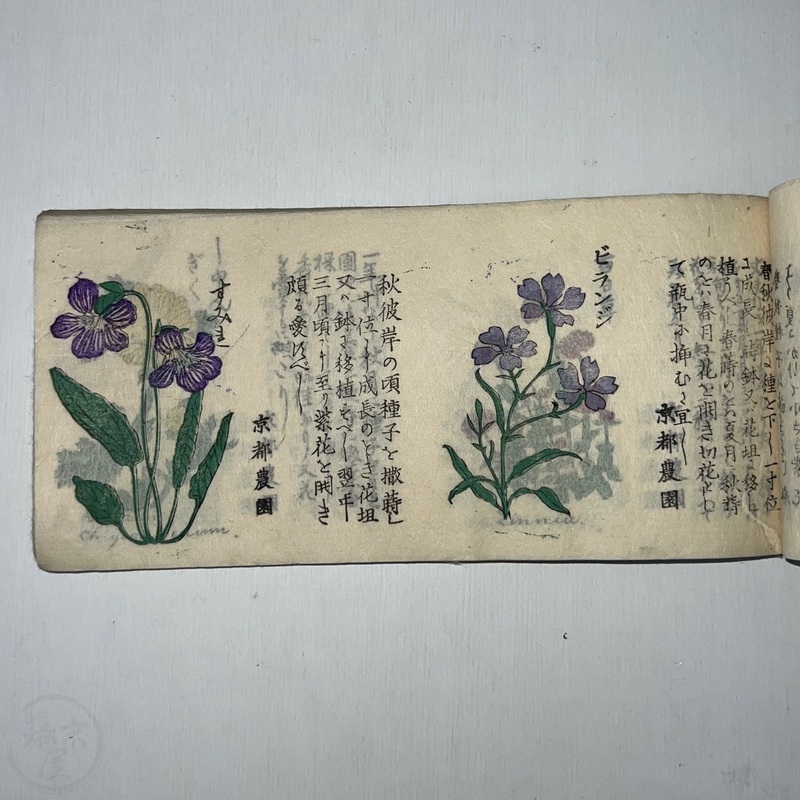 春秋彼岸に種を下し一寸位
に成長の時鉢又ハ花坦に移し
植うべし春蒔のもの夏月に秋蒔
のものハ春月に花を開き切花として
て瓶中に挿むに宜し
京都農園
ビランジ
秋彼岸の頃種子を撒蒔し
一寸位に成長のとき花坦
又ハ鉢に移植すべし翌年
三月頃に至り紫花を開き
頗る愛すべし
京都農園
すみれ